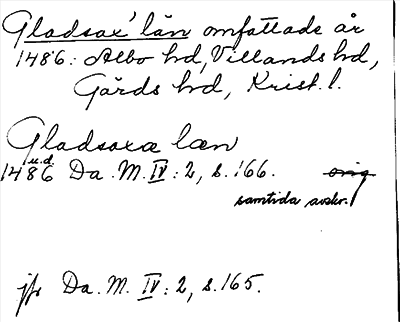 Gladsax' län omfattade år
1486: Albo hd, Villands hd,
Gärds hd, Krist. l.
Gladsaxa læn
u.d.
1486 Da. M. IV: 2, s. 166. orig
samtida avskr.
jfr Da. M. IV: 2, s. 165.